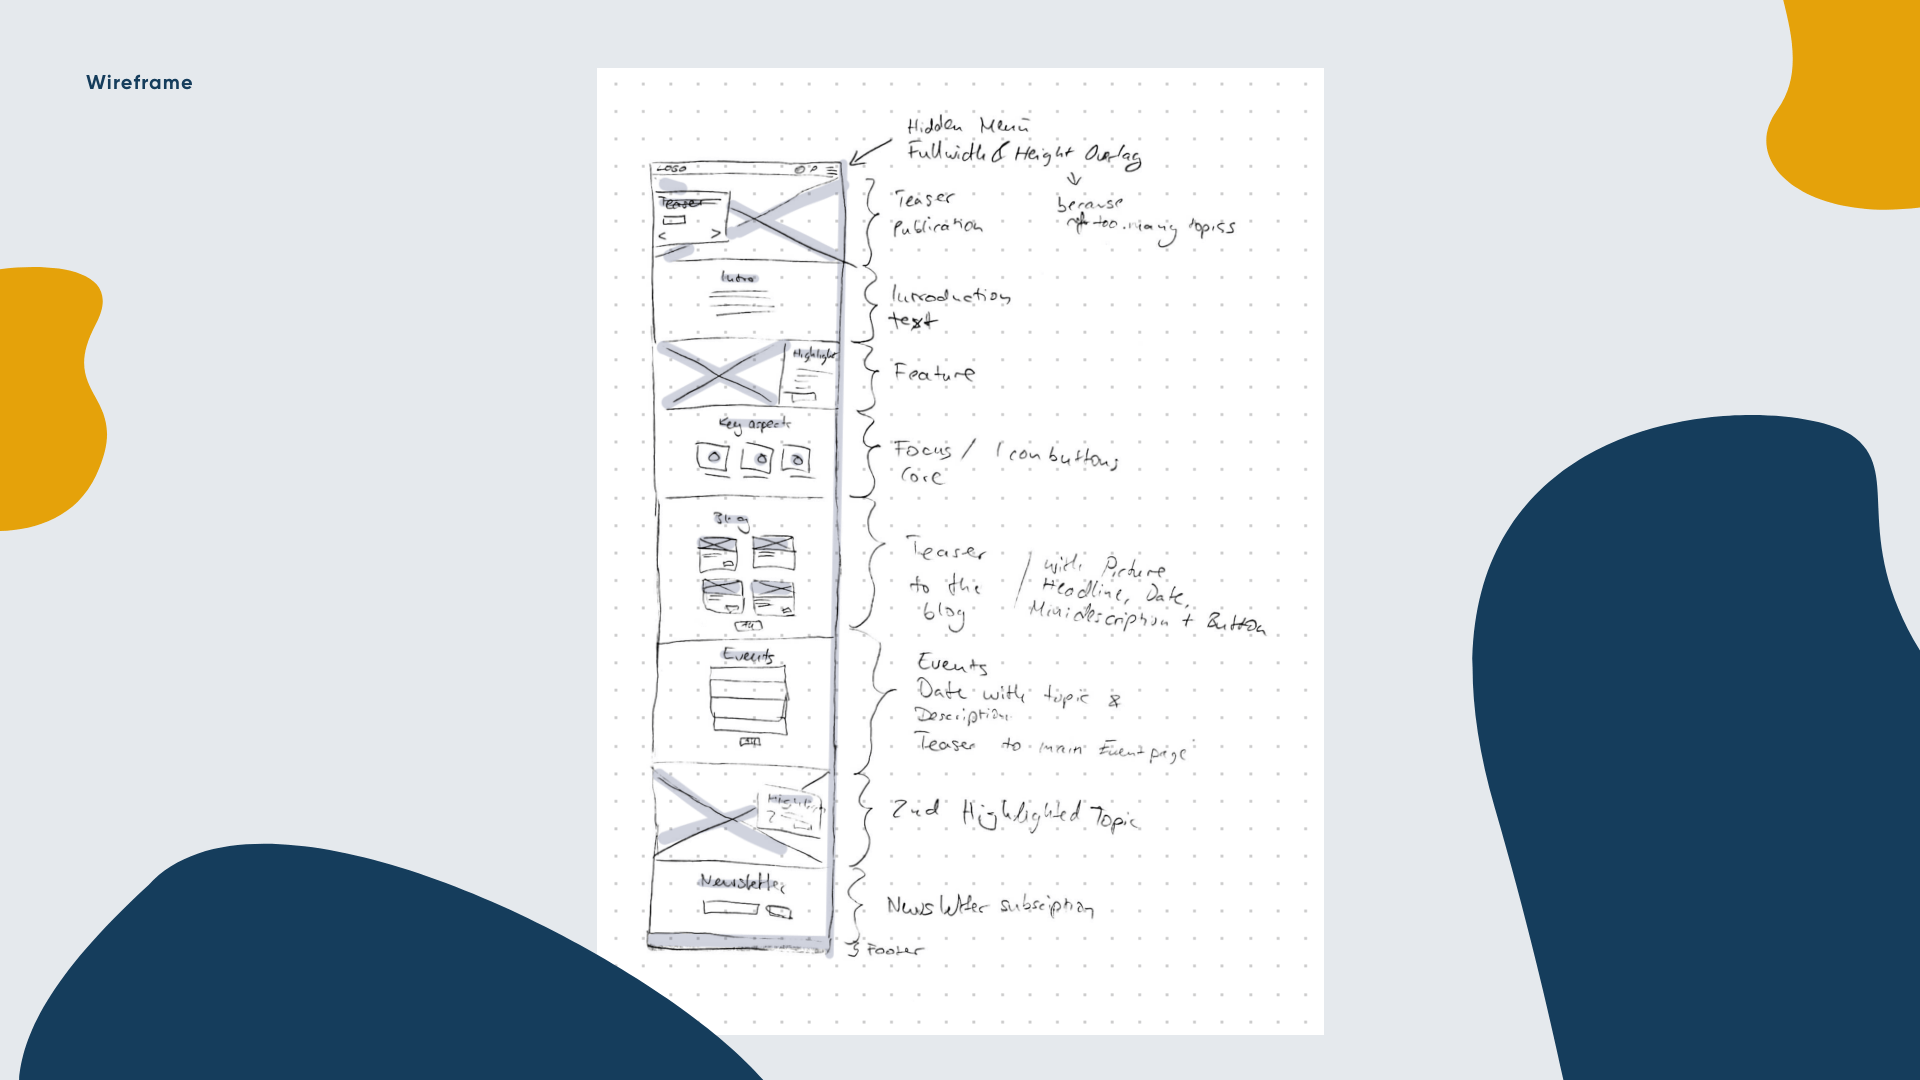 Wireframe
Hidden Menü
Fullwidth & Height Overlay
because
too many topics
LOGO
Teaser
< >
Teaser
publication
Intro
Introduction
text
Highlight
Feature
Key aspects
Focus / Icon buttons
Core
Blog
Teaser
to the
blog
with Picture
Headline, Date,
Minidescription + Button
Events
Events
Date with topic &
Description
Teaser to main Eventpage
Highlight
2
2nd Highlighted Topic
Newsletter
Newsletter subsciption
Footer